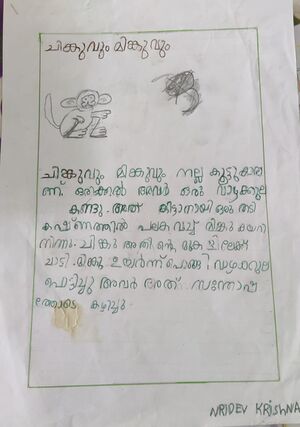 ചിങ്കുവും മിങ്കുവും
ചിങ്കുവും മിങ്കുവും നല്ല കൂട്ടുകാരാ
ണ്. ഒരിക്കൽ അവർ ഒരു വാഴക്കുല
കണ്ടു. അത് കിട്ടാനായി ഒരു തടി
കഷ്ണത്തിൽ പലക വച്ച് മിങ്കു കയറി
നിന്നു. ചിങ്കു അതിന്റെ മുകളിലേക്ക്
ചാടി. മിങ്കു ഉയർന്ന് പൊങ്ങി വാഴക്കുല
പൊട്ടിച്ചു അവർ അത് സന്തോഷ
ത്തോടെ കഴിച്ചു.
NRIDEV KRISHNA